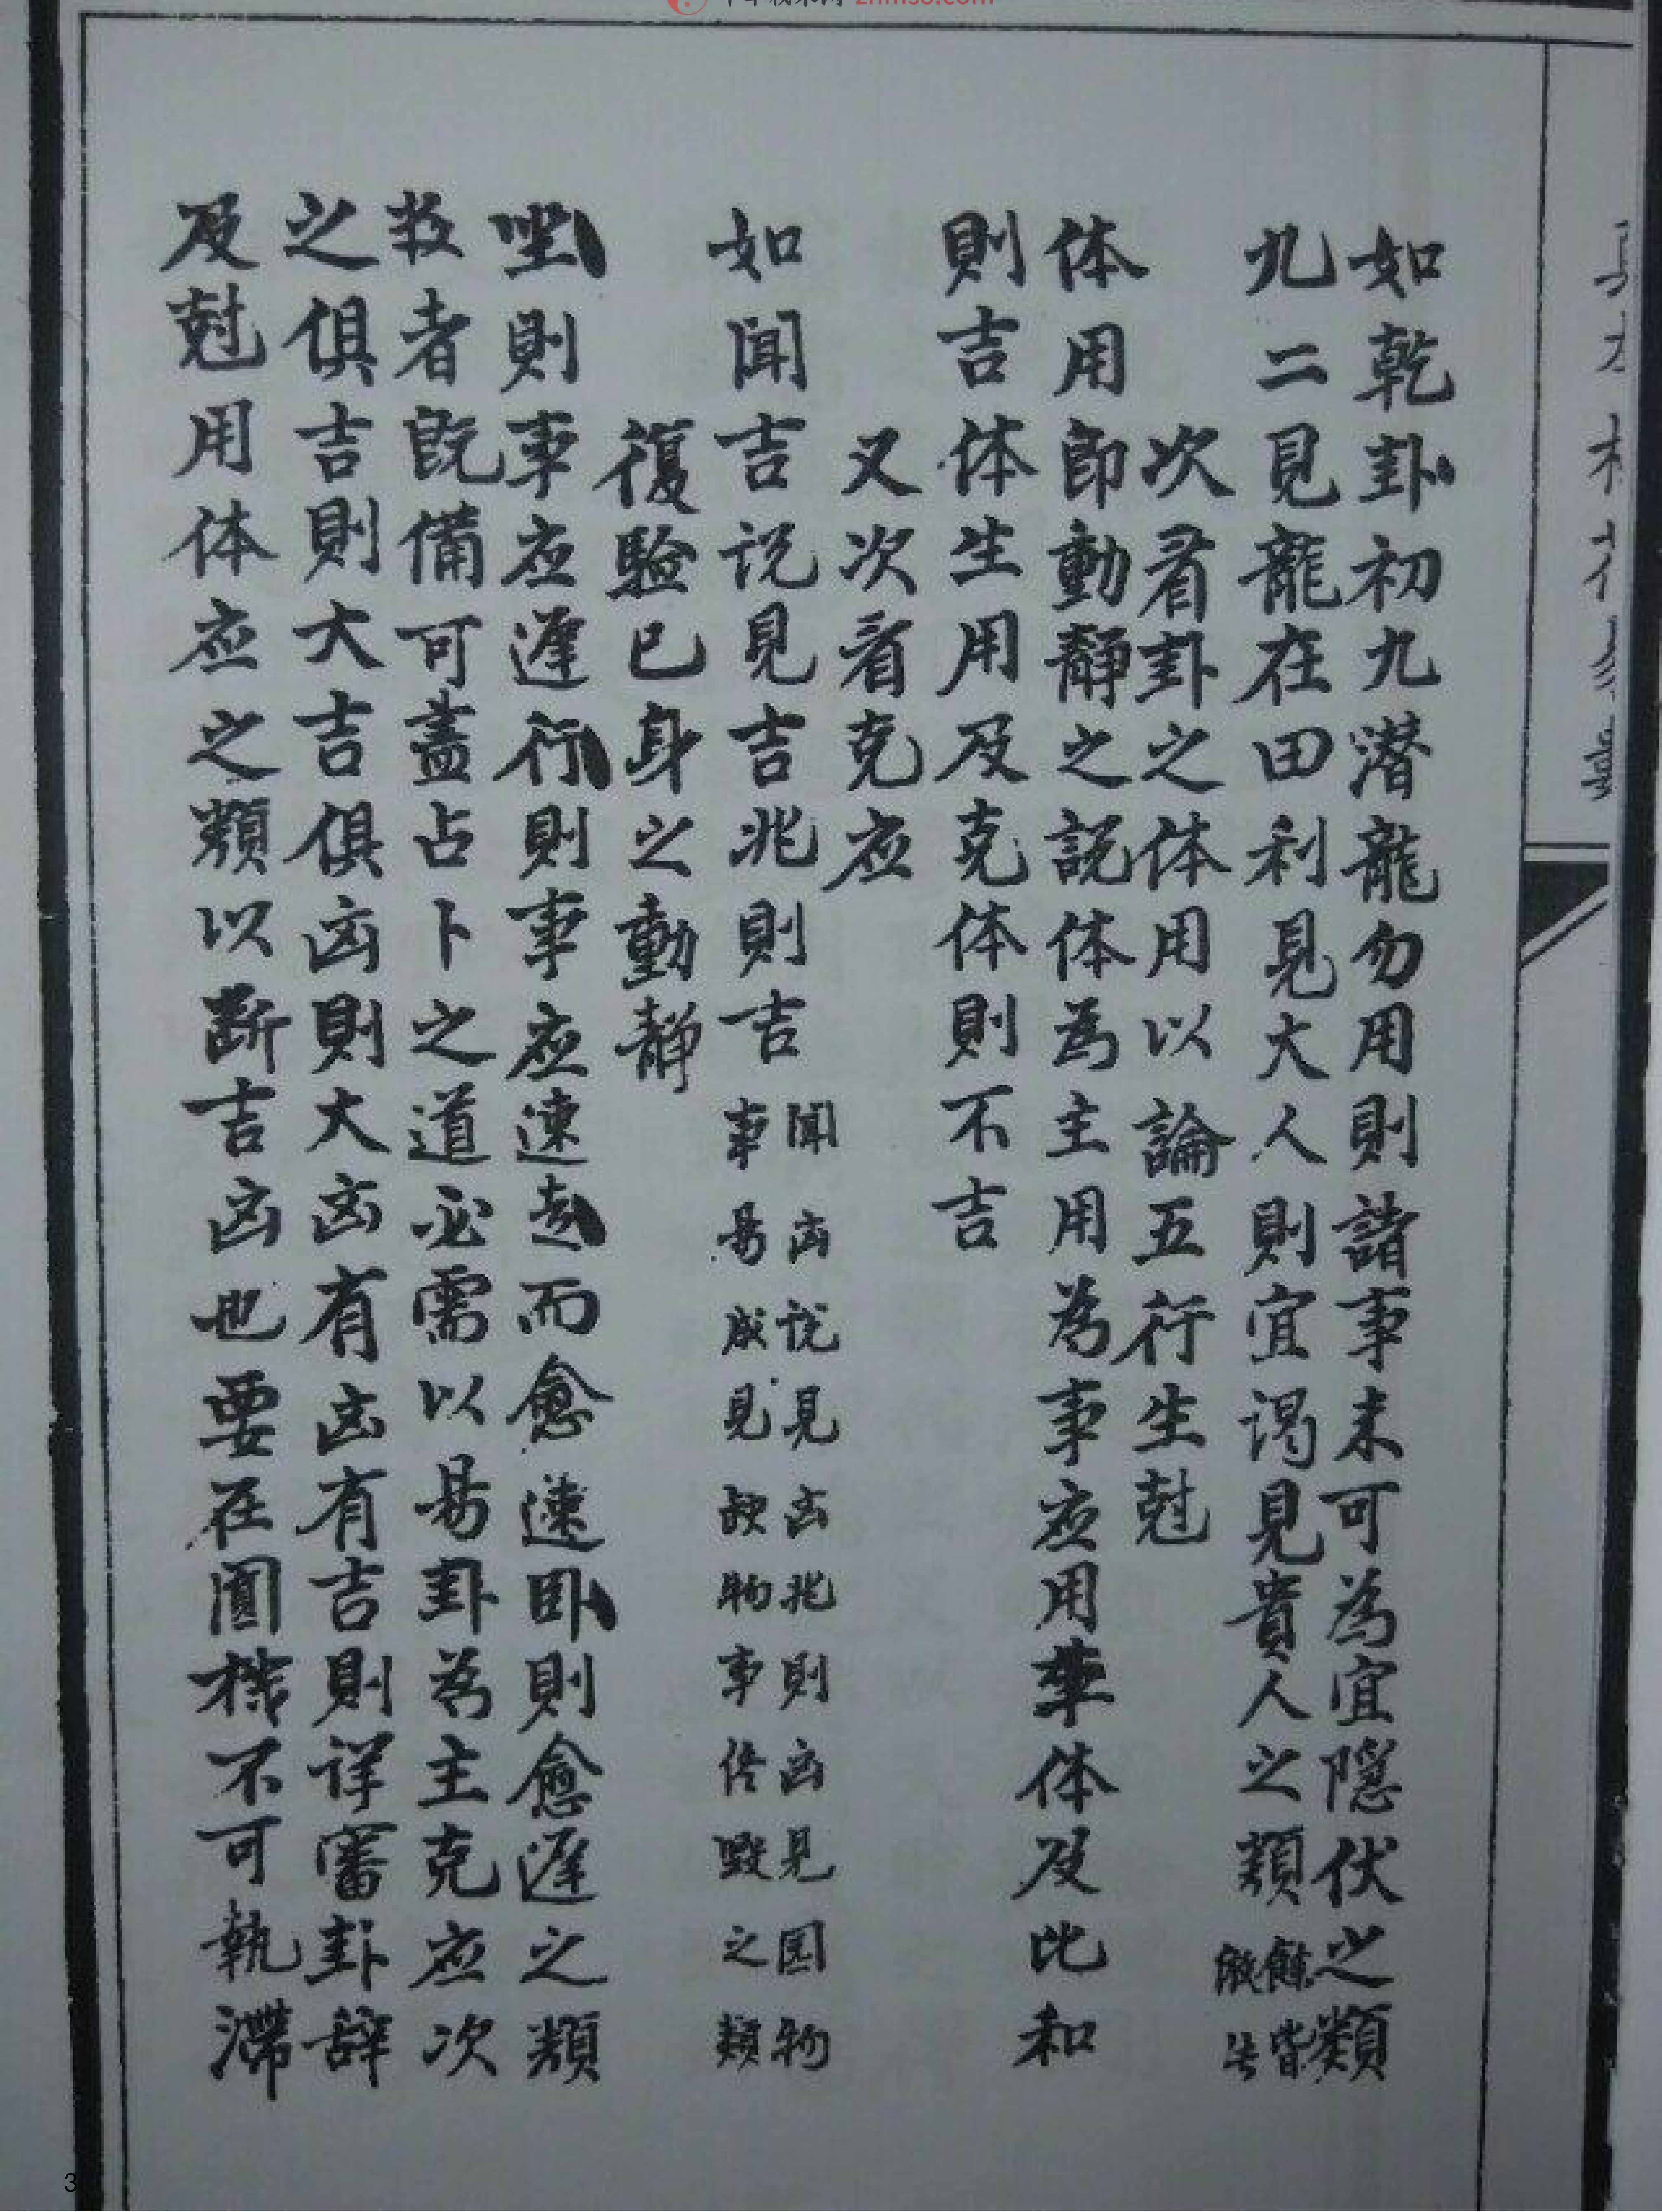 如乾卦初九潜龍勿用則諸事未可為宜隱伏之類
九二見龍在田利見大人則宜谒見貴人之類
餘皆
次看卦之体用以論五行生尅
体用即動靜之説体為主用為事应用事体及比和
則吉体生用及克体則不吉
又次看克应
如闻吉说見吉兆則吉
闻凶说見凶兆則凶見园物
事易成見缺物事终毁之類
復驗已身之動静
坐則事应遲行則事应速走而愈速卧則愈遲之類
数者既備可蓋占卜之道必需以易卦為主克应次
之俱吉則大吉俱凶則大凶有凶有吉則详審卦辞
及尅用体应之類以断吉凶也要在圓機不可執滞
3
znms8.com